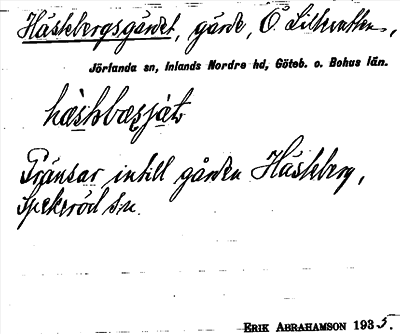 Häskebergsgärdet, gärde, Ö. Lilkvatten,
Jörlanda sn, Inlands Nordre hd, Göteb. o. Bohus län.
hæskbæsjæt
Gränsar intill gården Häskeberg,
Spekeröd sn.
ERIK ABRAHAMSON 1935.